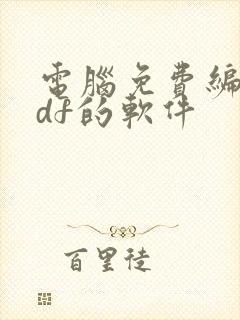 電腦免費編
df的軟件
百里徒